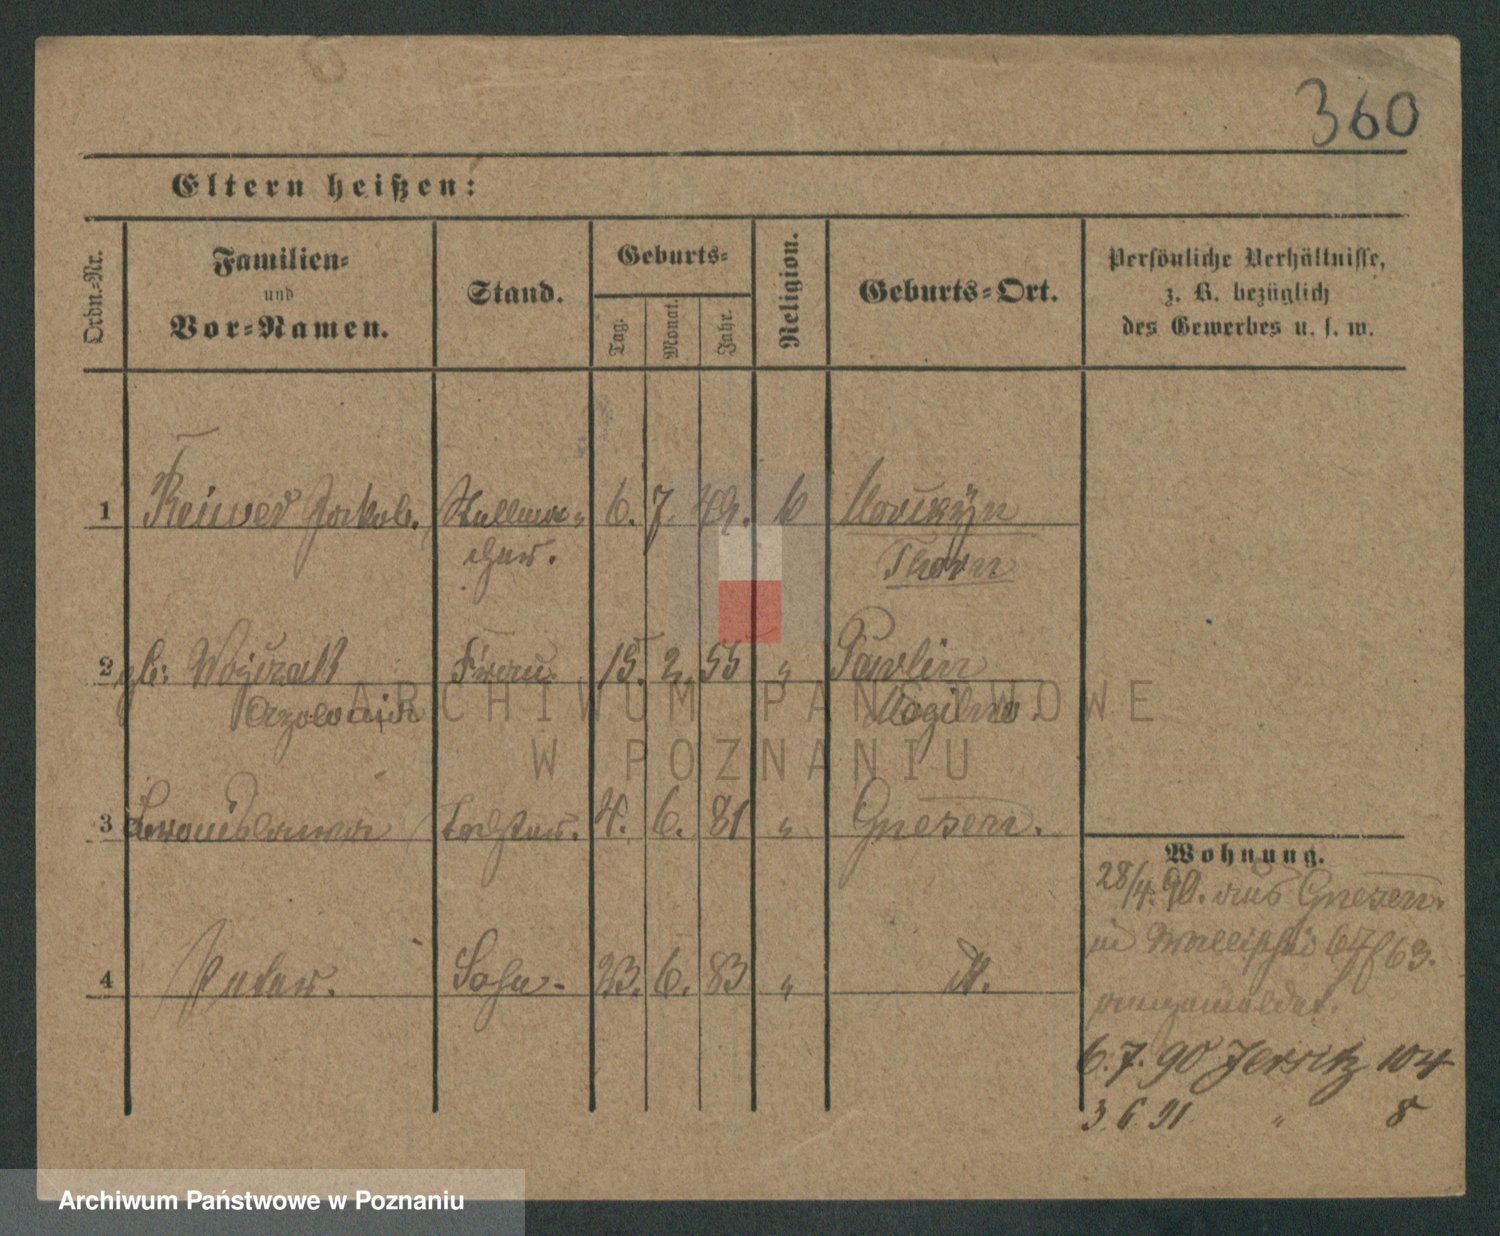 360
Eltern heißen:
Ordn.-Nr.
Familien-
und
Vor-Namen.
Stand.
Geburts-
Tag.
Monat.
Jahr.
Religion.
Geburts-Ort.
Persönliche Verhältnisse,
z. B. bezüglich
des Gewerbes u. s. w.
1 Jakob. Stellma- 6. 7. 49. k
cher. Thorn
2 gb: Wojczak Frau. 15. 2. 55 " Pawlin
Mogilno.
ARCHIWUM PAŃSTWOWE
W POZNANIU
3 Tochter. 4. 6. 81 " Gnesen.
Wohnung.
28/4. 90. aus Gnesen.
in Wallischei 67/63.
angemeldet.
4 Peter. Sohn- 23. 6. 83 " dt.
6. 7. 90 Jersitz 104
3. 6. 91 " 8
Archiwum Państwowe w Poznaniu